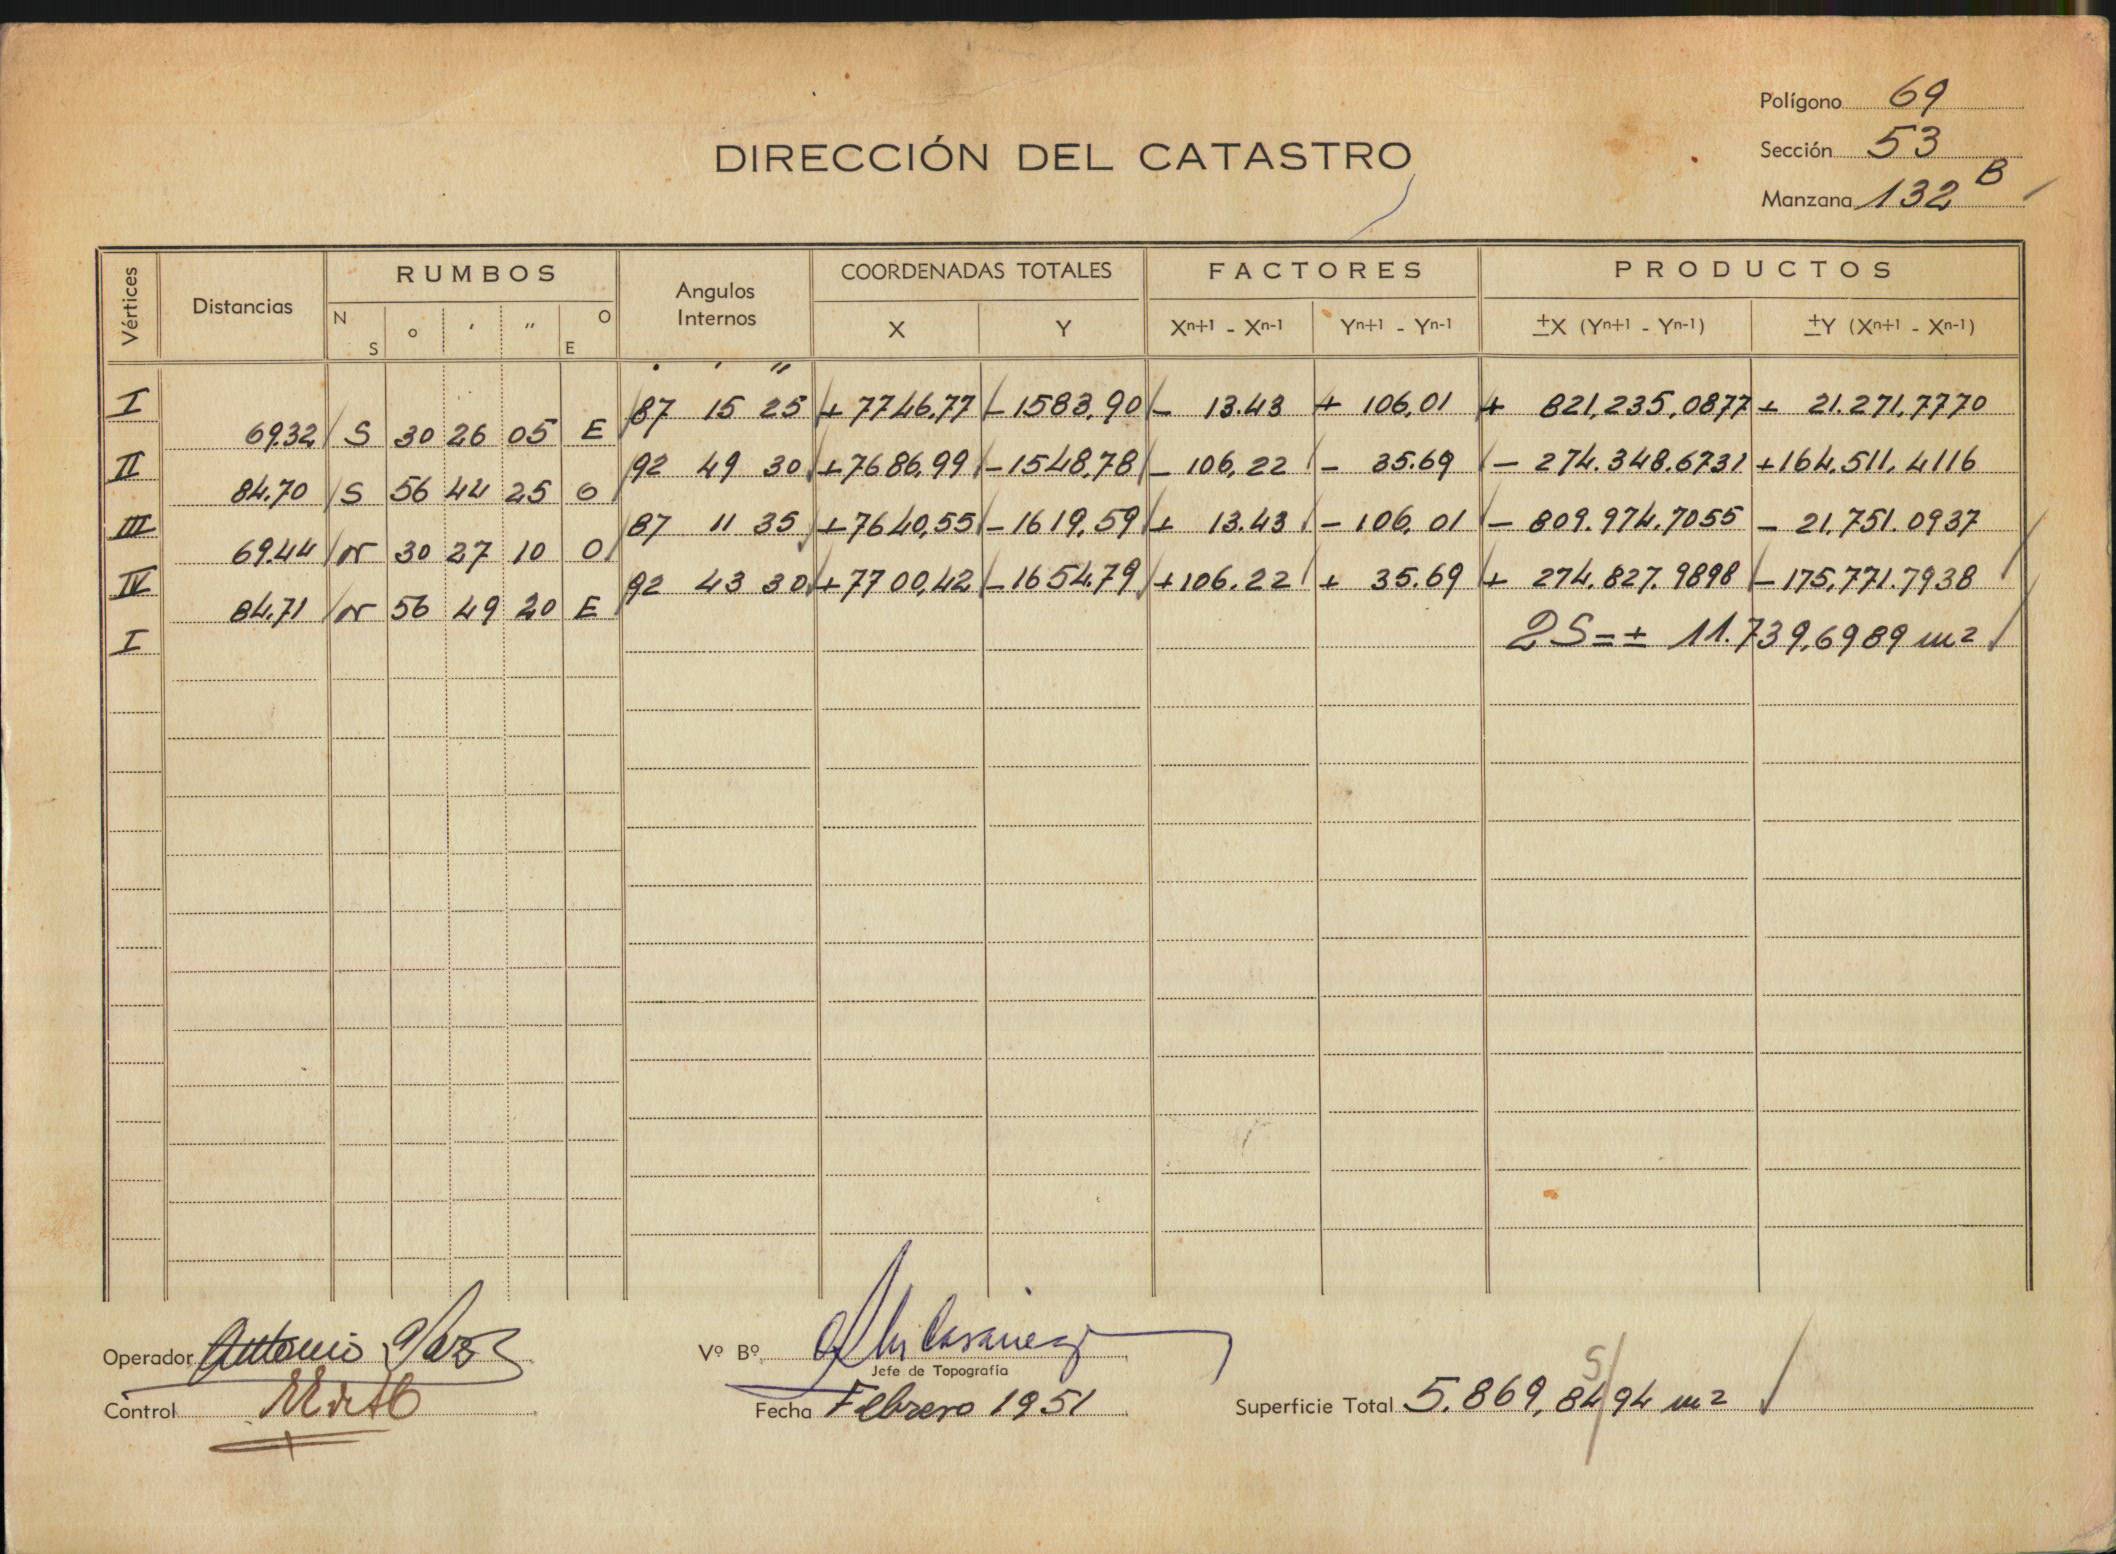 Polígono 69
DIRECCIÓN DEL CATASTRO
Sección 53
Manzana 132 B
Vértices Distancias RUMBOS Angulos Internos COORDENADAS TOTALES FACTORES PRODUCTOS
N S o ' " O E X Y Xn+1 - Xn-1 Yn+1 - Yn-1 ±X (Yn+1 - Yn-1) ±Y (Xn+1 - Xn-1)
° ' "
I 87 15 25 +7746,77 -1583,90 - 13.43 + 106,01 + 821,235,0877 + 21.271,7770
69.32 S 30 26 05 E
II 92 49 30 +7686,99 -1548,78 - 106,22 - 35.69 - 274.348.6731 +164.511.4116
84.70 S 56 44 25 O
III 87 11 35 +7640,55 -1619,59 + 13.43 - 106,01 - 809.974.7055 - 21.751.0937
69.44 N 30 27 10 O
IV 92 43 30 +7700,42 -1654.79 +106.22 + 35.69 + 274.827.9898 -175.771.7938
84,71 N 56 49 20 E
I 2S=± 11.739,6989 m2
Operador Antonio
Vº Bº
Jefe de Topografía
Control
Fecha Febrero 1951
Superficie Total 5.869,8494 m2
5